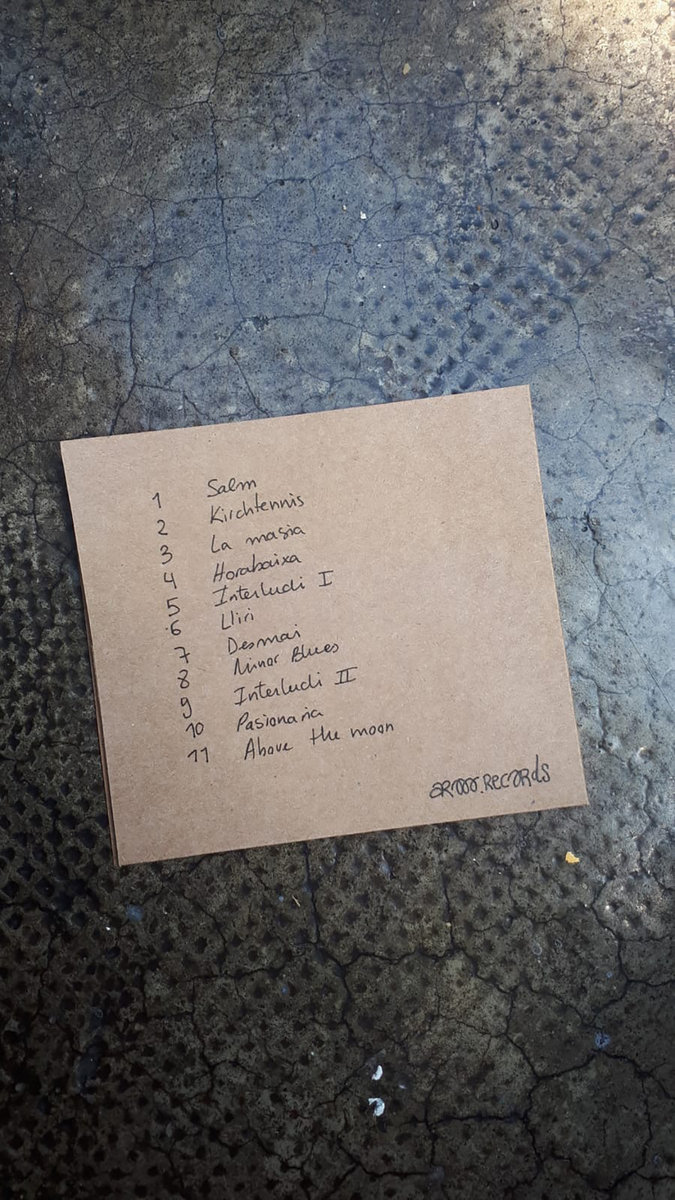 1 Salm
2 Kirchtennis
3 La masia
4 Horabaixa
5 Interludi I
6 Lliri
7 Desmai
8 Minor Blues
9 Interludi II
10 Pasionaria
11 Above the moon